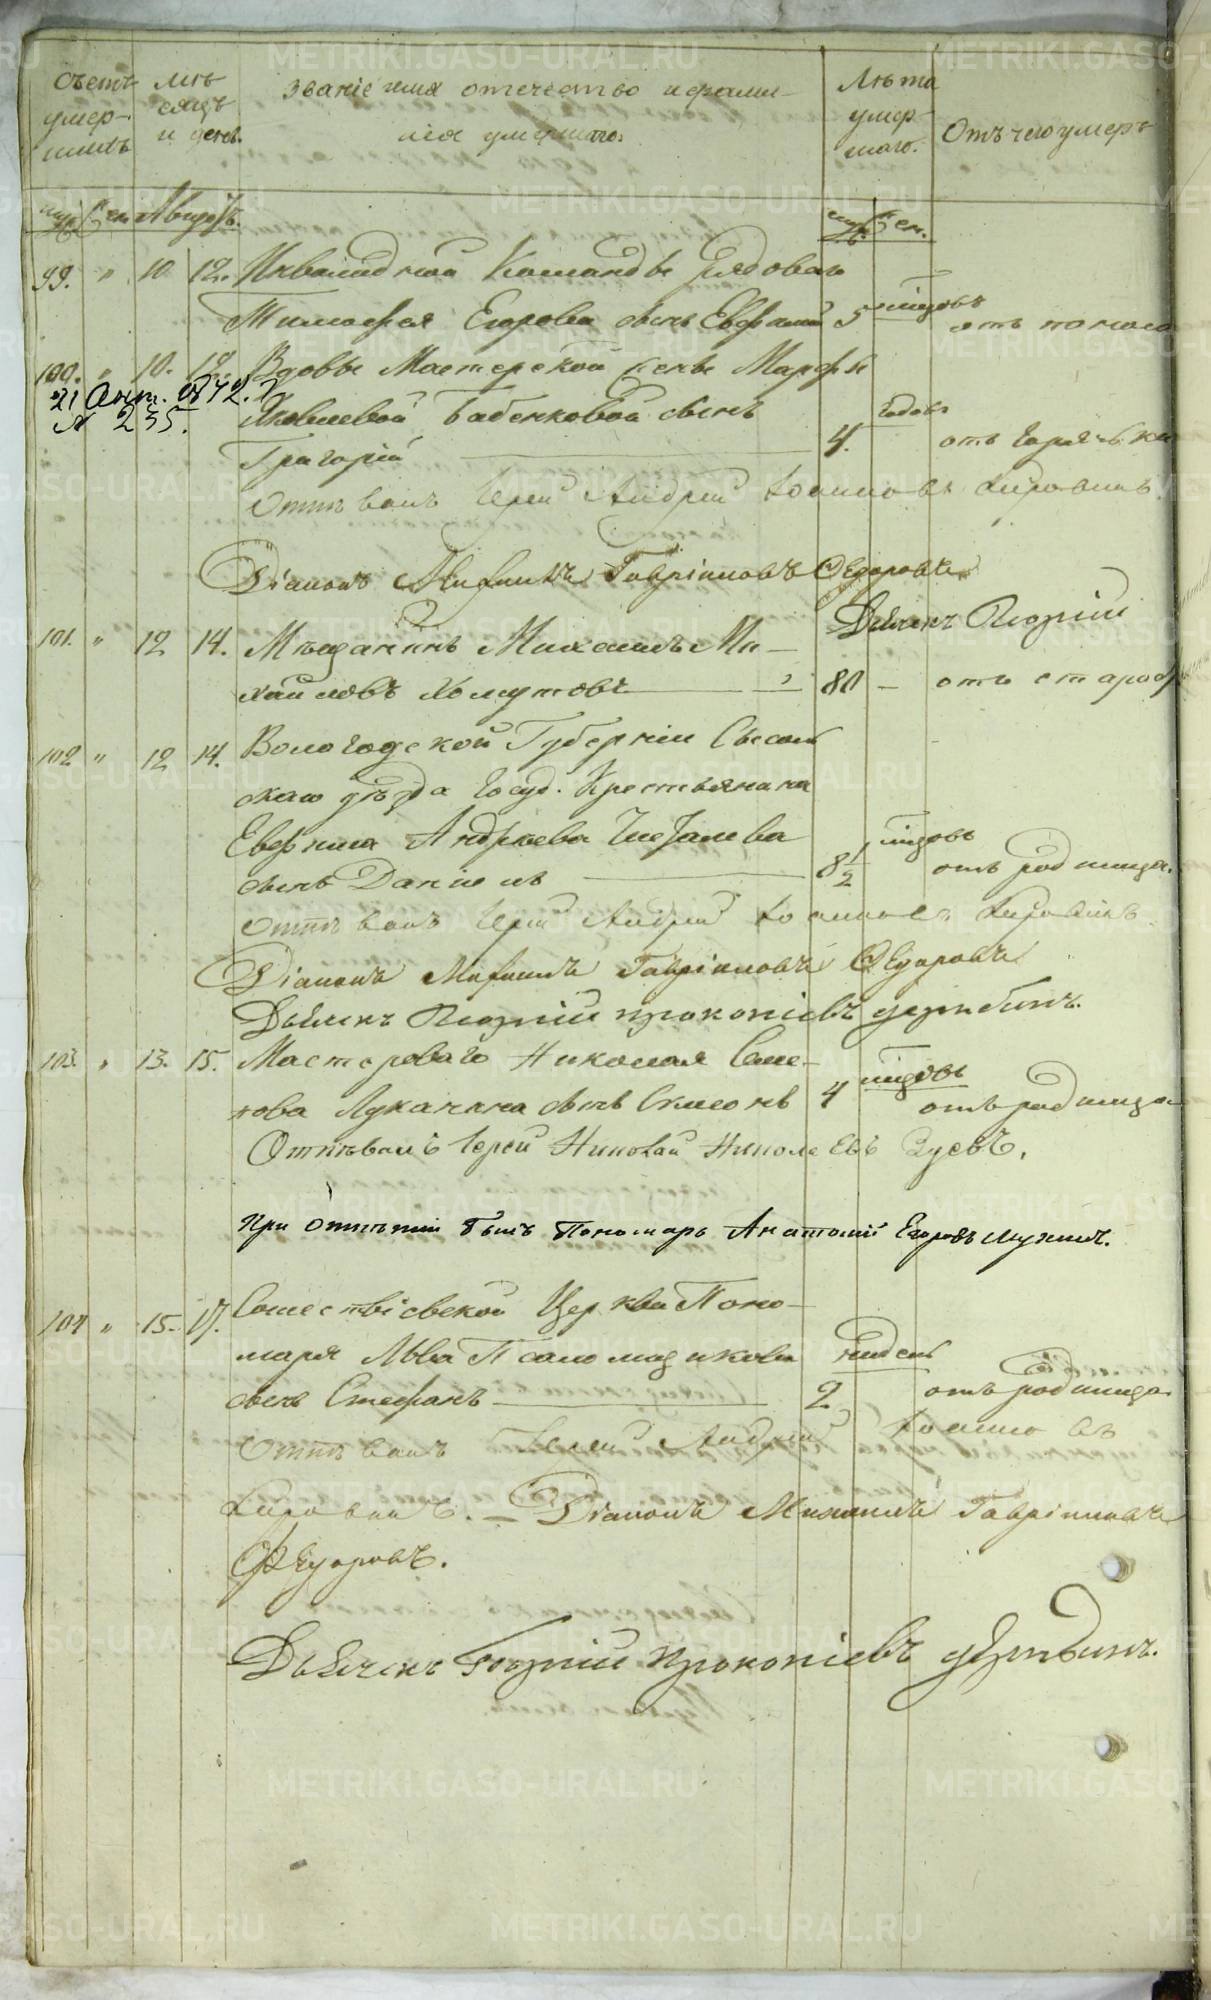 Счетъ умер- шихъ
Мѣ- сяцъ и день.
Званіе имя отечество и фами- лія умершаго.
Лѣта умер- шаго.
Отъ чего умеръ
муж. жен. Августъ.
муж. жен.
99. " 10 12. Инвалидной Команды рядоваго
Тимофея Егорова сынъ Евфимій 5 мѣсяцовъ отъ поноса
100. " 10. 12. Вдовы Мастерской жены Марфы
21 Окт. 1872 г.
№ 235.
Яковлевой Бабенковой сынъ
Григорій 4. годовъ отъ горячки
Отпѣвалъ Іерей Андрей Іоанновъ
Діаконъ Михаилъ Гавріиловъ Ѳедоровъ
Дьячекъ Георгій
101. " 12 14. Мѣщанинъ Михаилъ Ми-
хайловъ Хомутовъ 80 – отъ старос
102 " 12 14. Вологодской Губерніи Сысоль
скаго уѣзда Госуд. Крестьянина
Евфима Андреева сынъ Даніилъ 8 1/2 мѣсяцовъ отъ родимца.
Отпѣвалъ Іерей Андрей Іоанновъ
Діаконъ Михаилъ Гавріиловъ Ѳедоровъ
Дьячекъ Георгій Прокопіевъ Дерябинъ.
103. " 13. 15. Мастероваго Николая Семе-
нова Луканина сынъ Симеонъ 4 мѣсяцовъ отъ родимца
Отпѣвалъ Іерей Николай Николаевъ Зуевъ.
При отпѣтіи былъ Пономарь Анатолій Егоровъ Мухинъ.
104 " 15. 17. Сошествіевской Церкви Поно-
маря Льва Псаломщикова недель
сынъ Стефанъ 2 отъ родимца
Отпѣвалъ Іерей Андрей Іоанновъ
Діаконъ Михаилъ Гавріиловъ
Ѳедоровъ.
Дьячекъ Георгій Прокопіевъ Дерябинъ.
METRIKI.GASO-URAL.RU